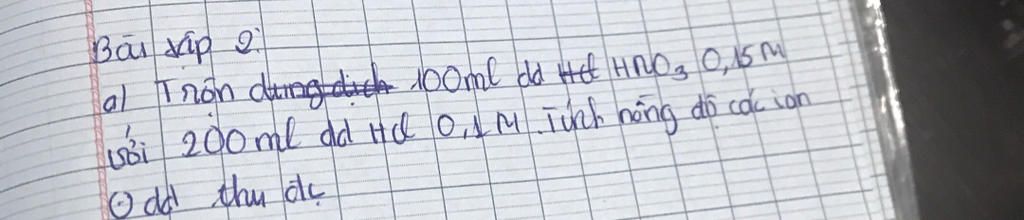 Bài tập 2:
a) Trộn dung dịch 100ml dd Hcl HNO3 0,15M
với 200ml dd Hcl 0,1M. Tính nồng độ các ion
⊙ dd thu đc